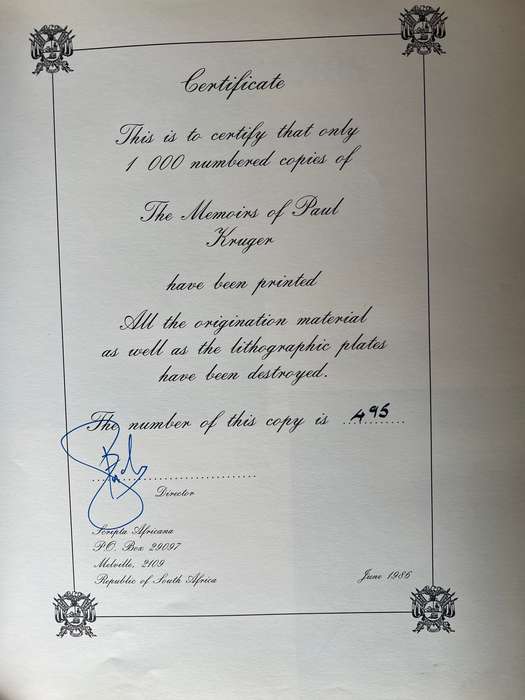 Certificate
This is to certify that only
1 000 numbered copies of
The Memoirs of Paul
Kruger
have been printed
All the origination material
as well as the lithographic plates
have been destroyed.
The number of this copy is ...495.......
..............................
Director
Scripta Africana
P.O. Box 29097
Melville, 2109
Republic of South Africa
June 1986